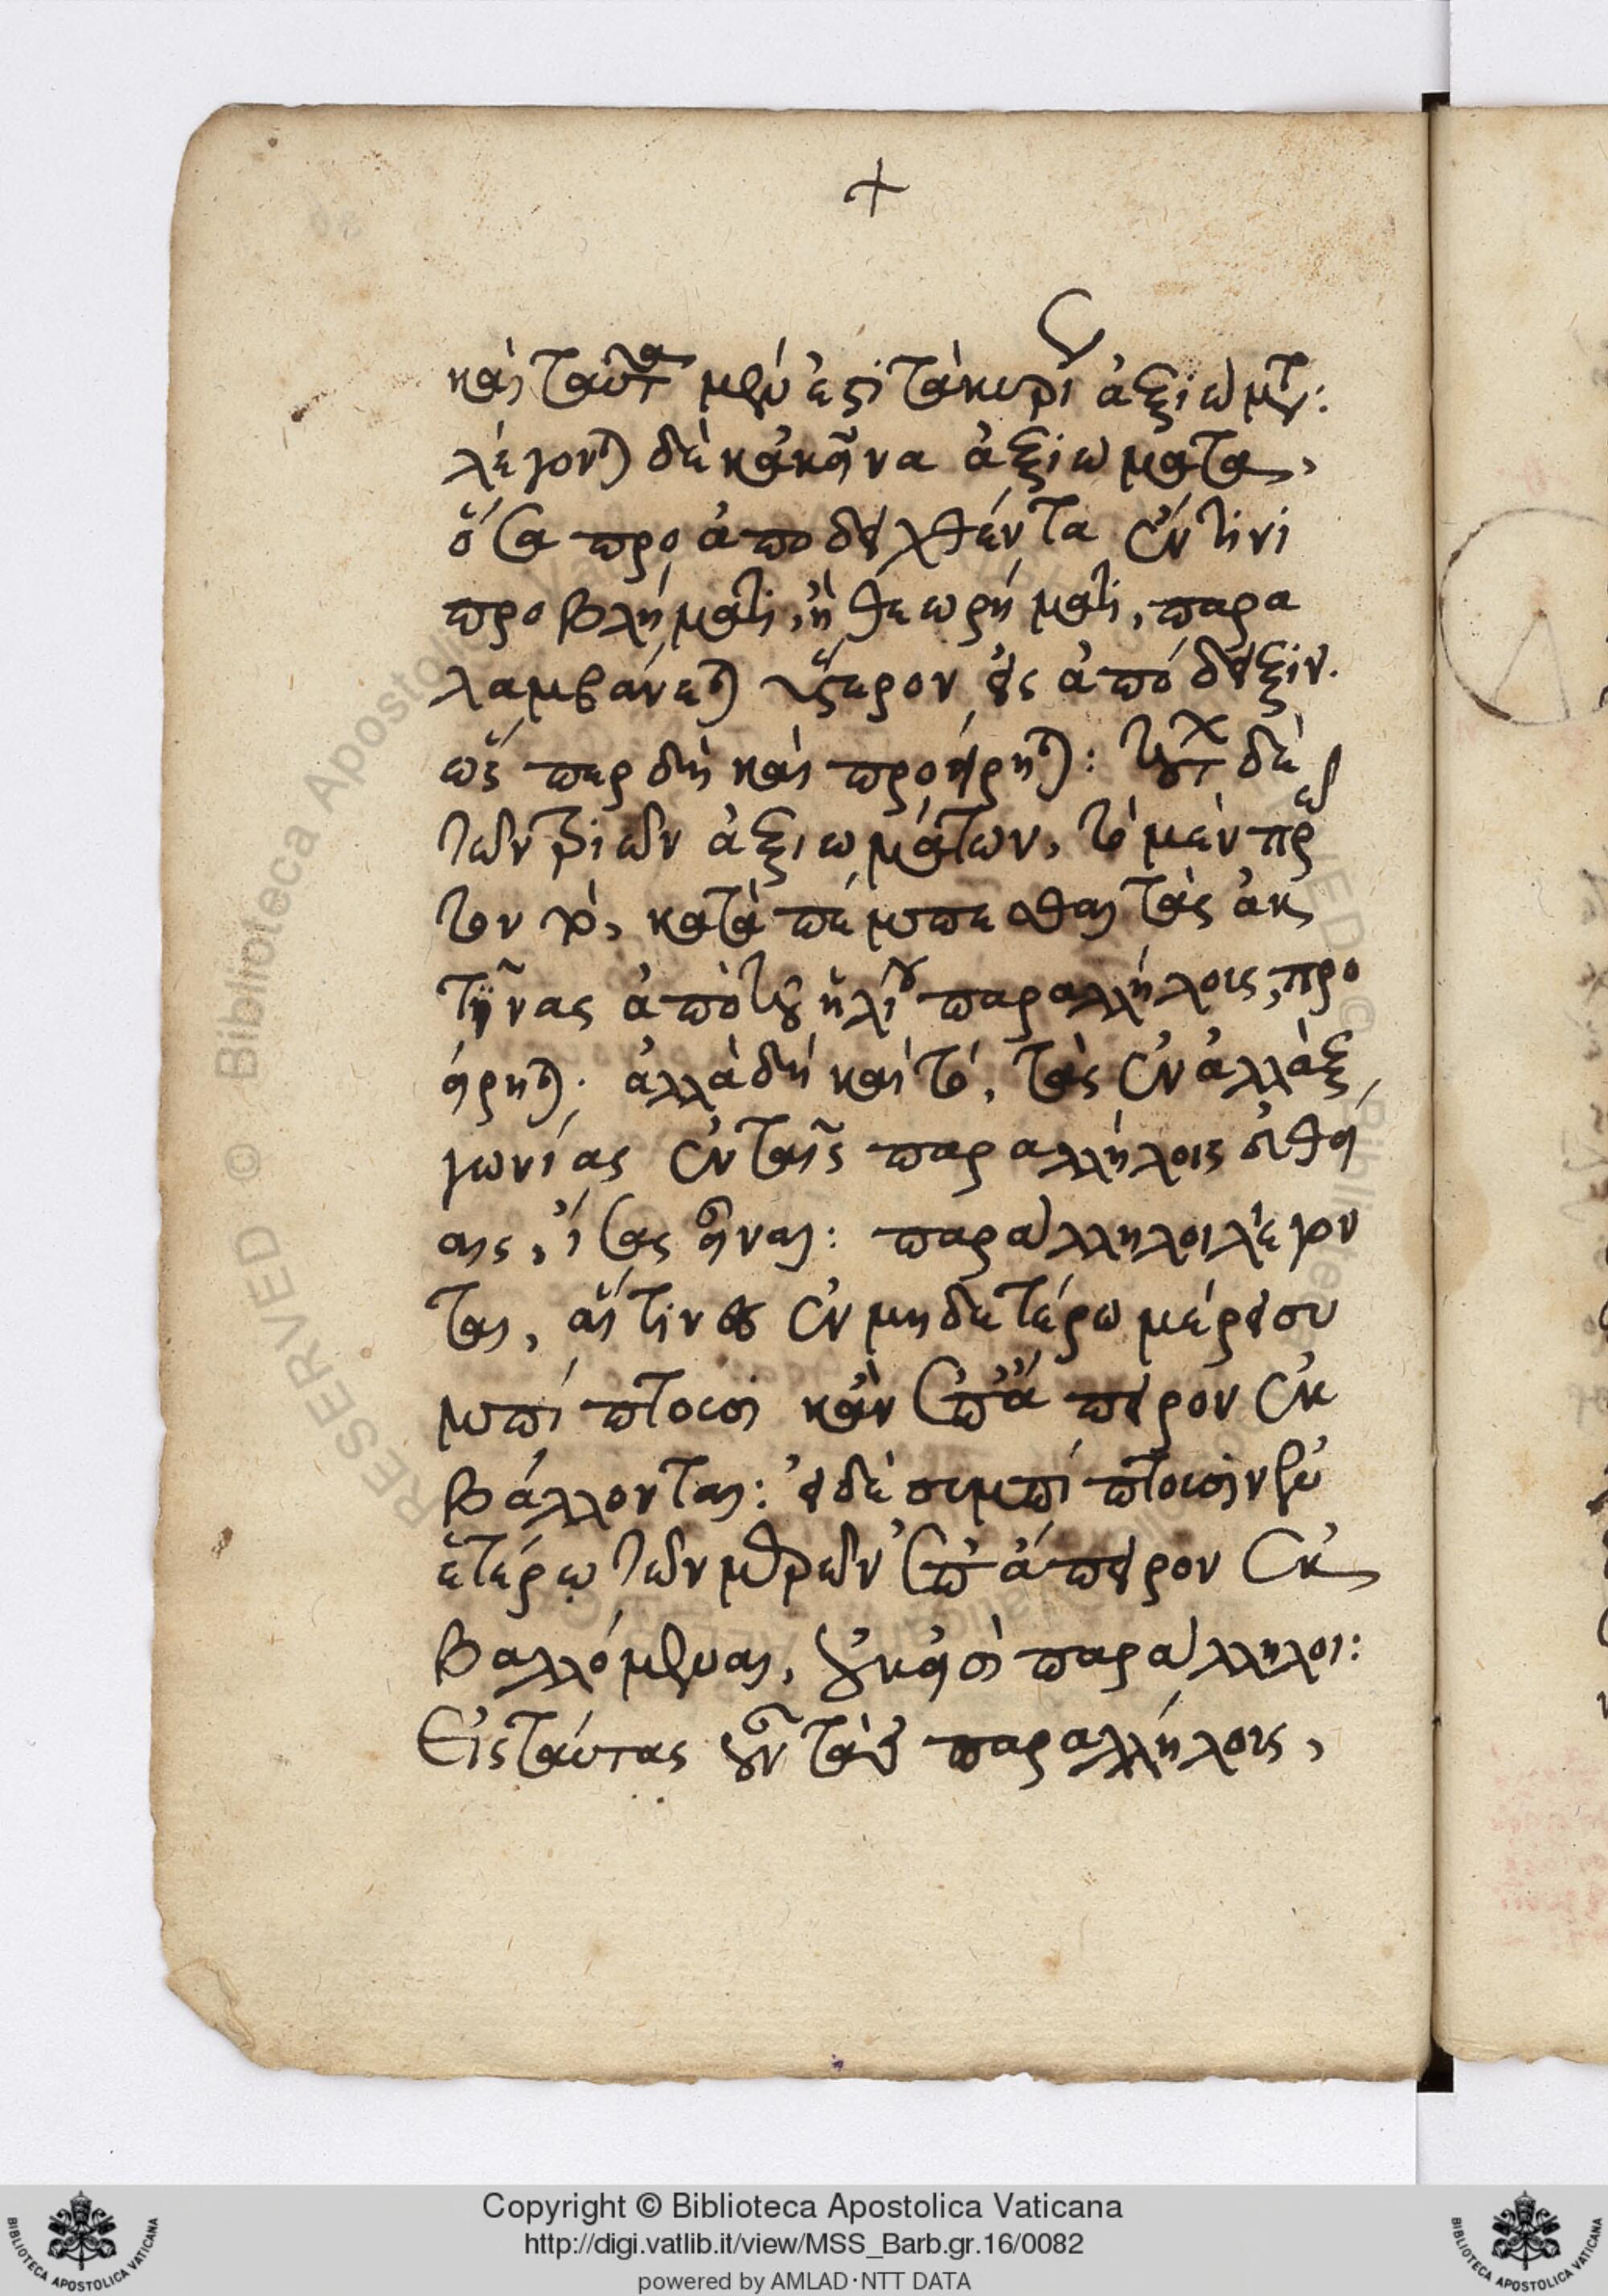 +
καὶ ταῦτα μέν ἐστι τὰ κυρίως ἀξιώματα:
λέγονται δὲ κἀκεῖνα ἀξιώματα,
ὅσα προαποδειχθέντα ἔν τινι
προβλήματι, ἢ θεωρήματι, παρα
λαμβάνεται ὕστερον εἰς ἀπόδειξιν.
ὥσπερ δὴ καὶ προείρηται: τοιούτων δὲ
τῶν τριῶν ἀξιωμάτων, τὸ μὲν πρῶ
τον τὸ, καταπέμπεσθαι τὰς ἀκ
τῖνας ἀπὸ τοῦ ἡλίου παραλλήλους, προ
είρηται. ἀλλὰ δὴ καὶ τό, τὰς ἐναλλὰξ
γωνίας ἐν ταῖς παραλλήλοις εὐθεί
αις, ἴσας εἶναι: παράλληλοι λέγον
ται, αἵτινες ἐν μηδετέρω μέρει συ
μπίπτουσι κἂν ἐπ' ἄπειρον ἐκ
βάλλονται: εἰ δὲ συμπίπτουσιν ἐν
ἑτέρῳ τῶν μερῶν ἐπ' ἄπειρον ἐκ
βαλλόμεναι, οὐκ εἰσὶ παράλληλοι:
Εἰς ταύτας οὖν τὰς παραλλήλους,
Copyright © Biblioteca Apostolica Vaticana
http://digi.vatlib.it/view/MSS_Barb.gr.16/0082
powered by AMLAD·NTT DATA